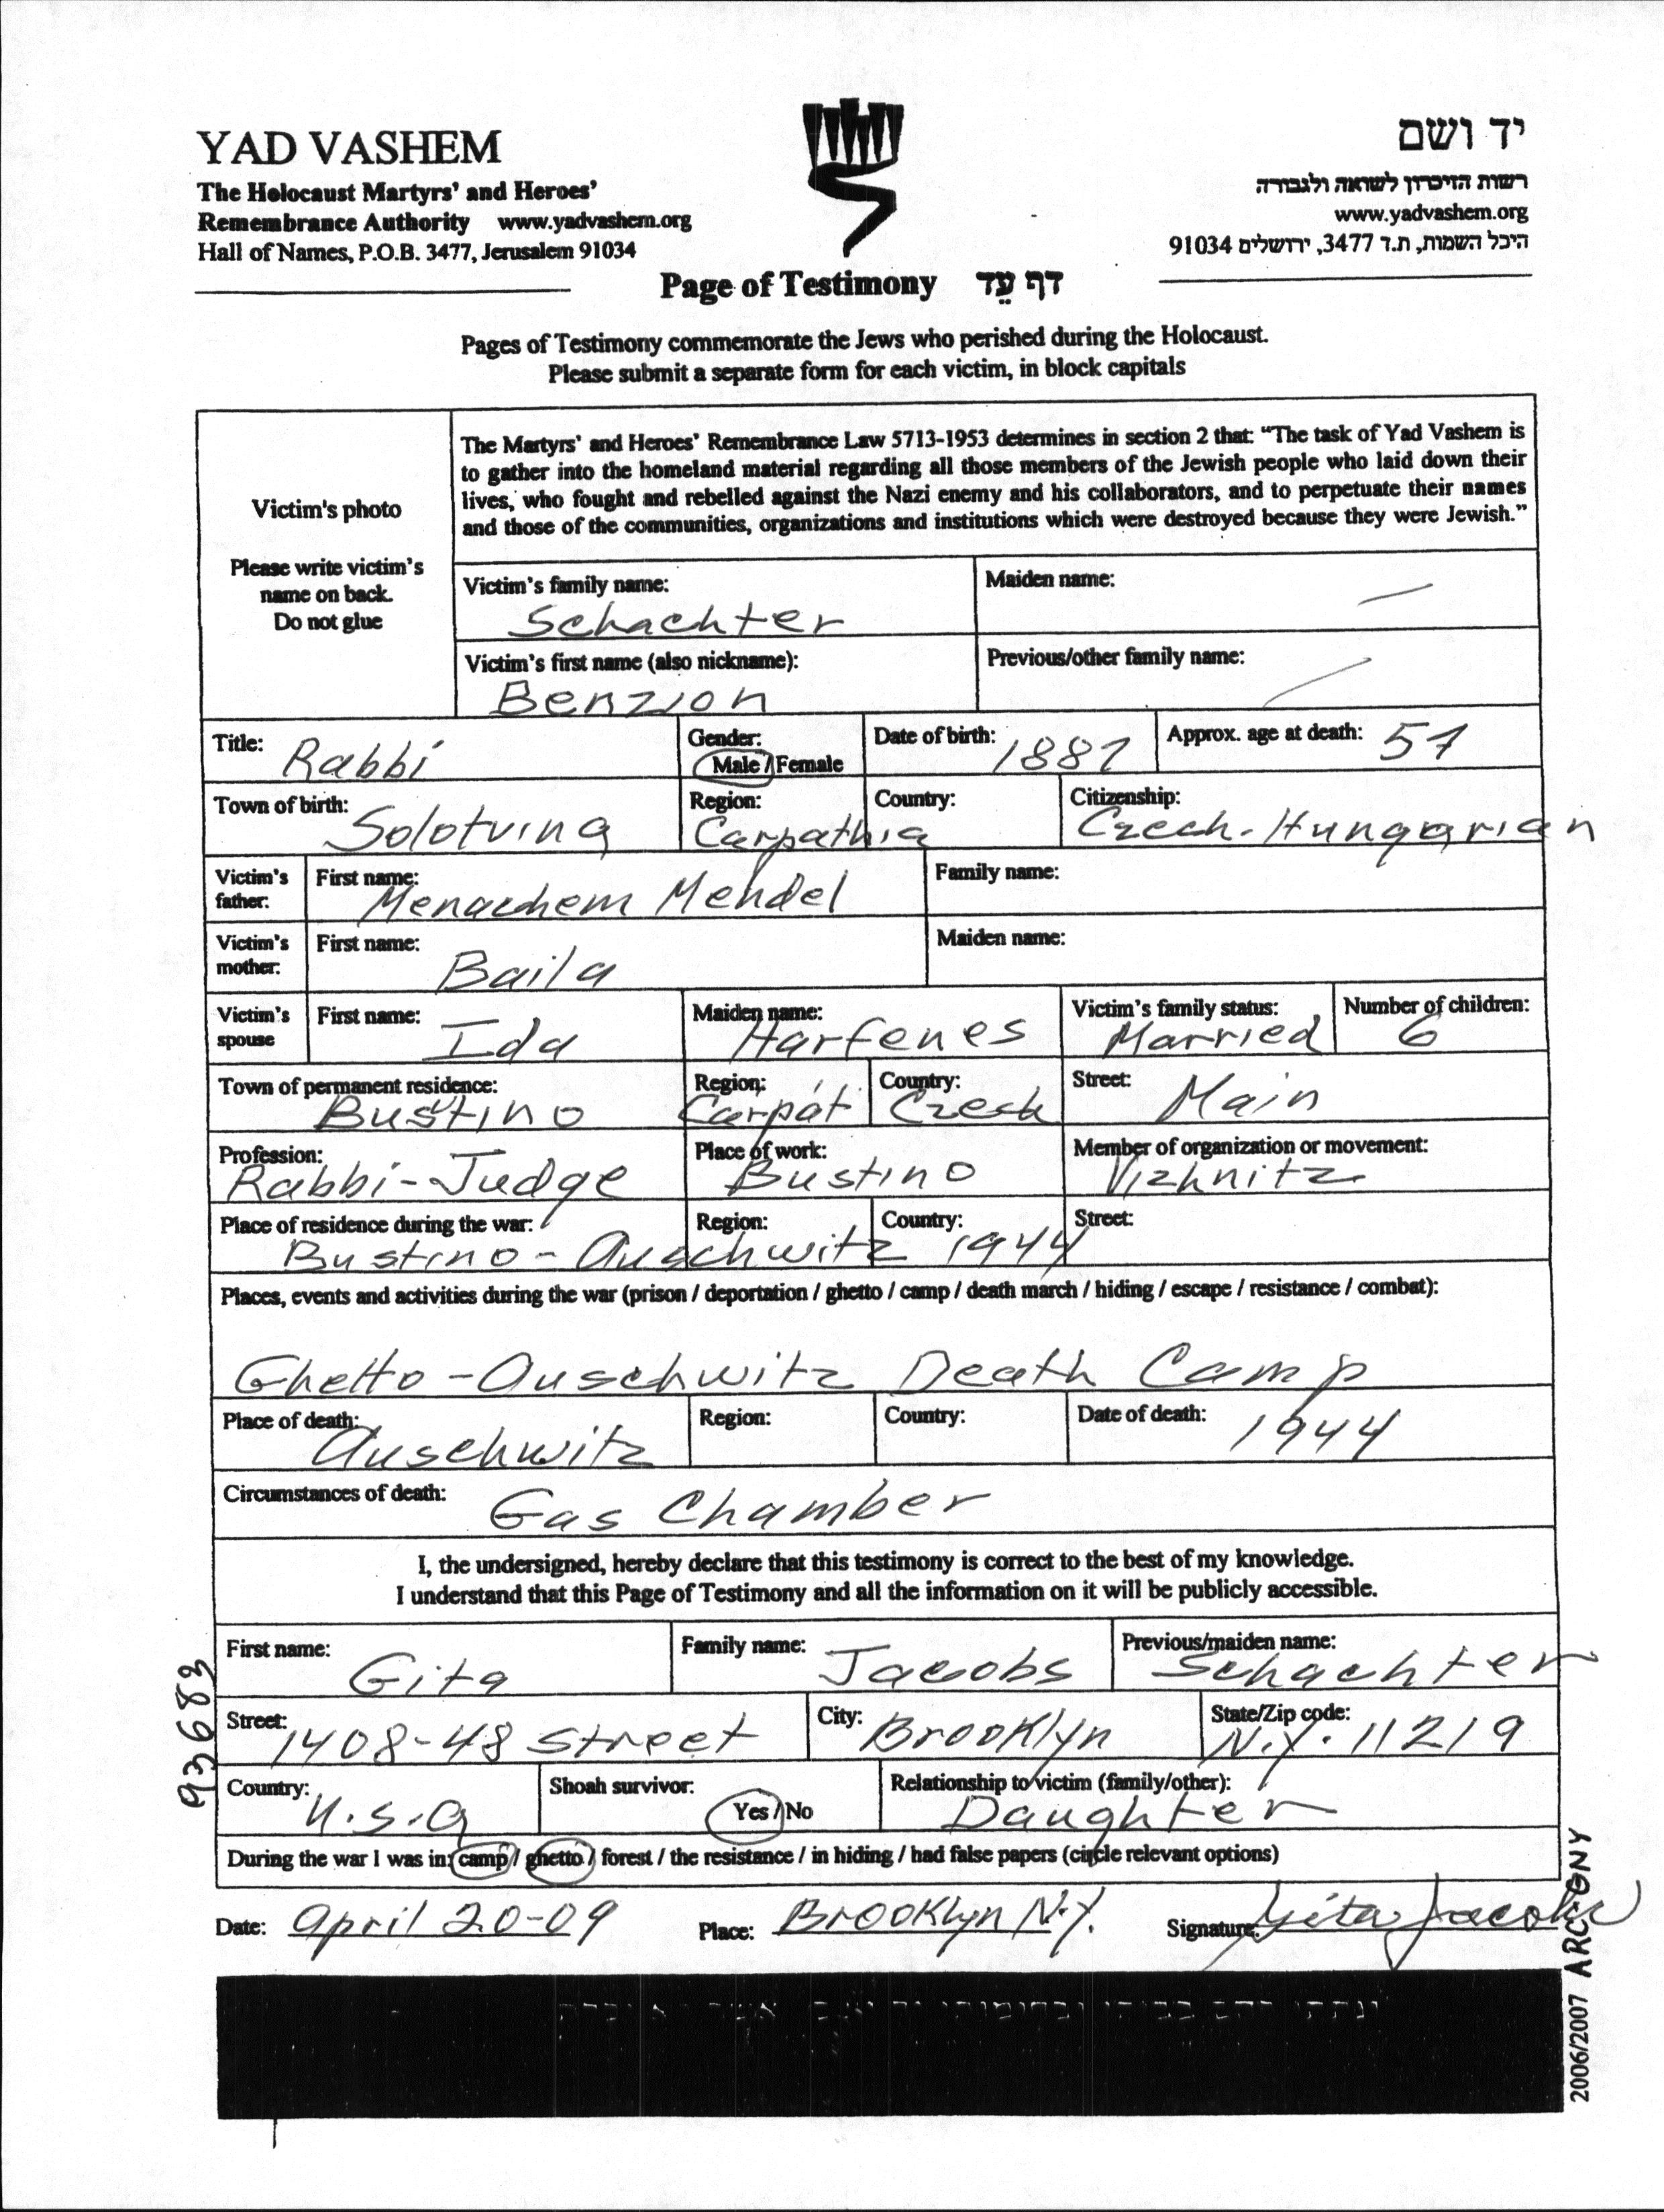 YAD VASHEM
The Holocaust Martyrs' and Heroes'
Remembrance Authority www.yadvashem.org
Hall of Names, P.O.B. 3477, Jerusalem 91034
יד ושם
רשות הזיכרון לשואה ולגבורה
www.yadvashem.org
היכל השמות, ת.ד 3477, ירושלים 91034
Page of Testimony דף עֵד
Pages of Testimony commemorate the Jews who perished during the Holocaust.
Please submit a separate form for each victim, in block capitals
Victim's photo
Please write victim's
name on back.
Do not glue
The Martyrs' and Heroes' Remembrance Law 5713-1953 determines in section 2 that: “The task of Yad Vashem is
to gather into the homeland material regarding all those members of the Jewish people who laid down their
lives, who fought and rebelled against the Nazi enemy and his collaborators, and to perpetuate their names
and those of the communities, organizations and institutions which were destroyed because they were Jewish.”
Victim's family name: Maiden name:
Schachter —
Victim's first name (also nickname): Previous/other family name:
Benzion —
Title: Rabbi Gender: Male / Female Date of birth: 1887 Approx. age at death: 57
Town of birth: Solotvina Region: Carpathia Country: Citizenship: Czech-Hungarian
Victim's father: First name: Menachem Mendel Family name:
Victim's mother: First name: Baila Maiden name:
Victim's spouse First name: Ida Maiden name: Harfenes Victim's family status: Married Number of children: 6
Town of permanent residence: Bustino Region: Carpat Country: Czech Street: Main
Profession: Rabbi-Judge Place of work: Bustino Member of organization or movement: Vizhnitz
Place of residence during the war: Region: Country: Street:
Bustino - Auschwitz 1944
Places, events and activities during the war (prison / deportation / ghetto / camp / death march / hiding / escape / resistance / combat):
Ghetto - Auschwitz Death Camp
Place of death: Auschwitz Region: Country: Date of death: 1944
Circumstances of death: Gas Chamber
I, the undersigned, hereby declare that this testimony is correct to the best of my knowledge.
I understand that this Page of Testimony and all the information on it will be publicly accessible.
First name: Gita Family name: Jacobs Previous/maiden name: Schachter
Street: 1408-48 Street City: Brooklyn State/Zip code: N.Y. 11219
Country: U.S.A Shoah survivor: Yes / No Relationship to victim (family/other): Daughter
During the war I was in: camp / ghetto / forest / the resistance / in hiding / had false papers (circle relevant options)
Date: April 20-09 Place: Brooklyn N.Y. Signature: Gita Jacobs
93683
2006/2007 ARC-GNY